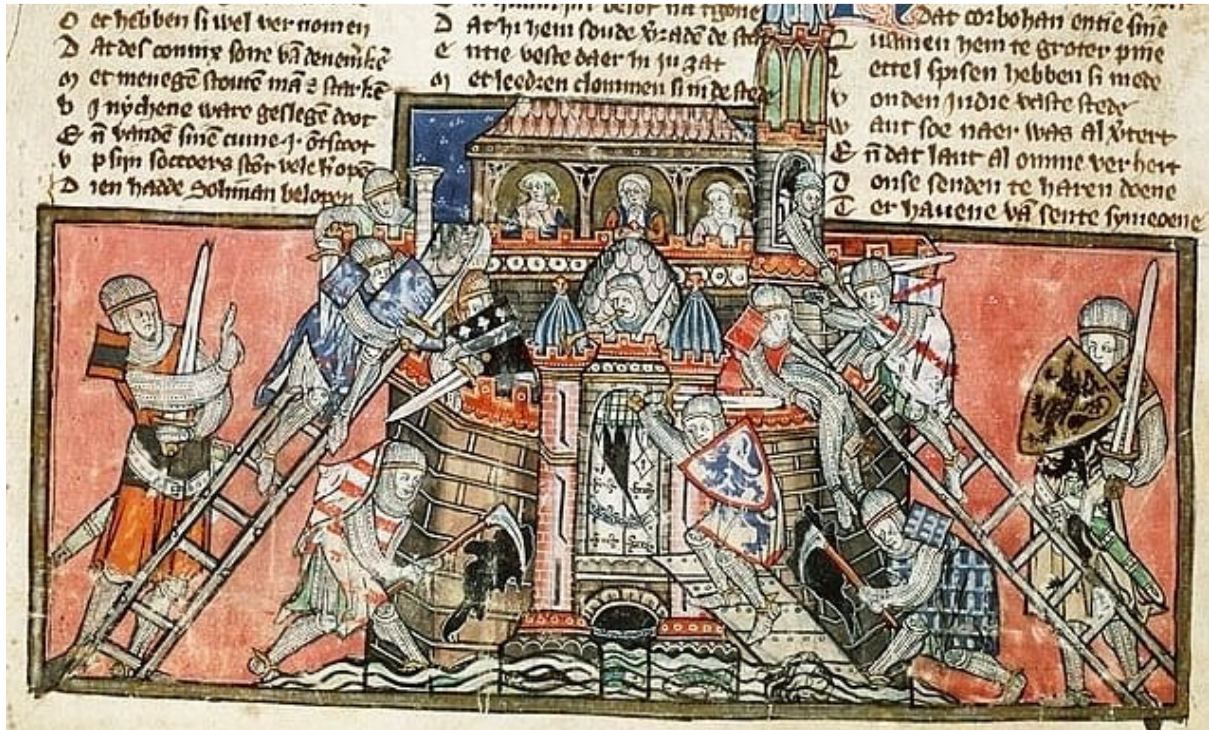 O et hebben si wel vernomen
D at des conincx sone vā denemke
M et menegē stoutē mā ⁊ starkē
B i nychene ware geslegen doot
E ñ vandē sinē cume .j. ōtscoot
V p sijn soccoers stōt vele
D ien hadde Soliman belopen
belof na tgone
D at hi hem soude v'radē de
E ntie veste daer hi in zat
M et leedren clommen si in de stede
Dat corbohan entie sine
Q uamen hem te groter pine
L ettel spisen hebben si mede
V onden in die vaste stede
W ant soe naer was al v'tert
E ñ dat lant al omme verhert
D onse senden te haren doene
T er havene vā sente symeoene